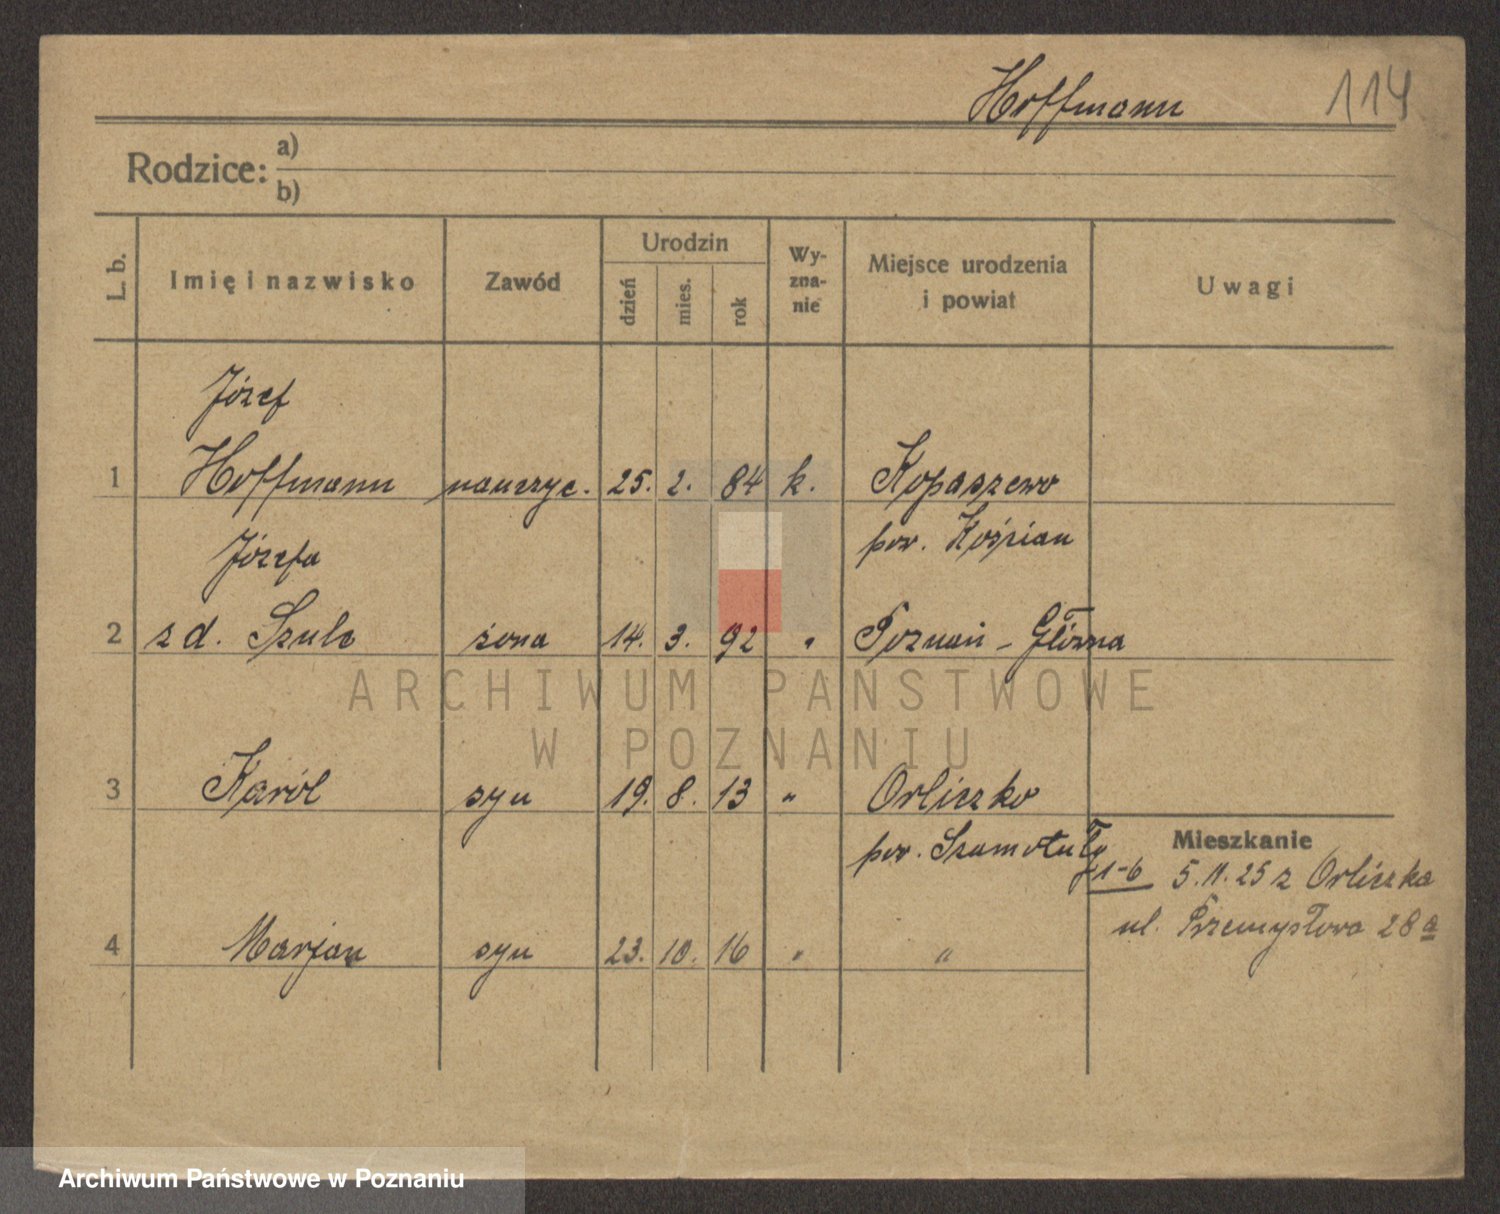 Hoffmann 114
Rodzice: a)
b)
L. b. Imię i nazwisko Zawód Urodzin dzień mies. rok Wy-zna-nie Miejsce urodzenia i powiat Uwagi
Józef
1 Hoffmann nauczyc. 25. 2. 84 k. Kopaszewo
pow. Kościan
Józefa
2 z d. Szulc żona 14. 3. 92 " Poznań - Główna
ARCHIWUM PAŃSTWOWE
W POZNANIU
3 Karól syn 19. 8. 13 " Orliczko
pow. Szamotuły
Mieszkanie
1-6 5.11.25 z Orliczka
ul. Przemysłowa 28a
4 Marjan syn 23. 10. 16 " "
Archiwum Państwowe w Poznaniu